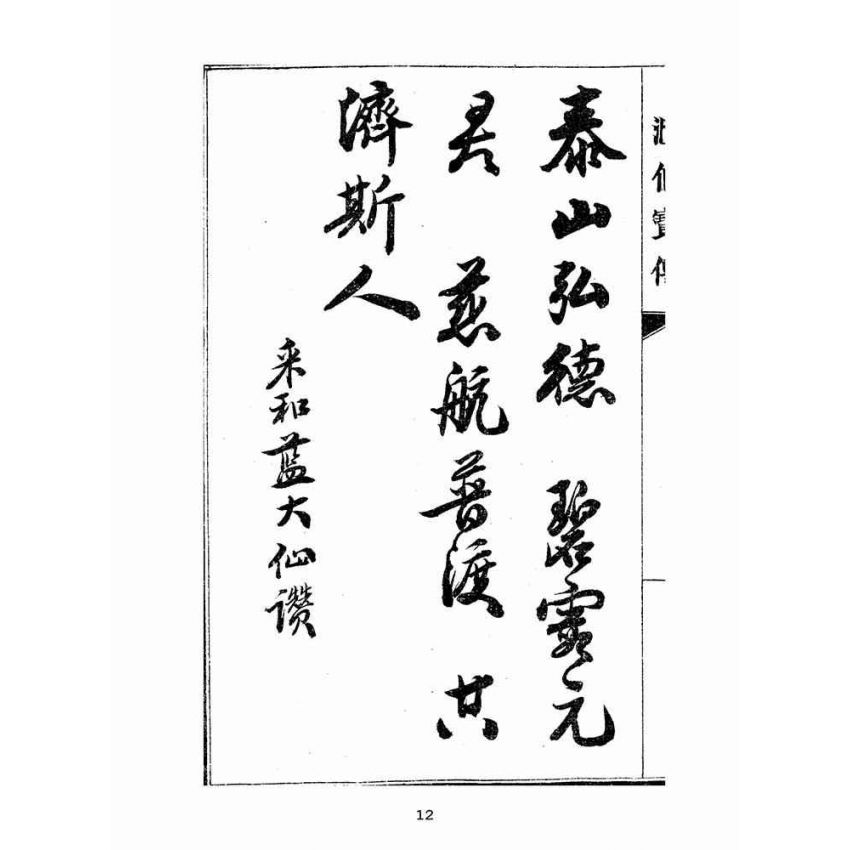 泰山弘德 碧霞元
君 慈航普渡 共
濟斯人
采和藍大仙讚
12